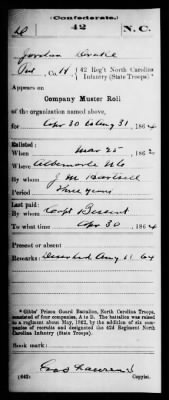 (Confederate.)
42 N.C.
Jordan
Pvt, Co. H, 42 Reg't North Carolina
Infantry (State Troops).*
Appears on
Company Muster Roll
of the organization named above,
for Apr 30 to Aug 31, 1864
Enlisted:
When Mar 25, 1862
Where Albemarle N.C.
By whom J. M.
Period Three years
Last paid:
By whom Capt
To what time Apr 30, 1864
Present or absent
Remarks: Deserted Aug 11. 64
*Gibbs' Prison Guard Battalion, North Carolina Troops,
consisted of four companies, A to D. The battalion was raised
to a regiment about May, 1862, by the addition of six com-
panies of recruits and designated the 42d Regiment North
Carolina Infantry (State Troops).
Book mark:
(642) Copyist.